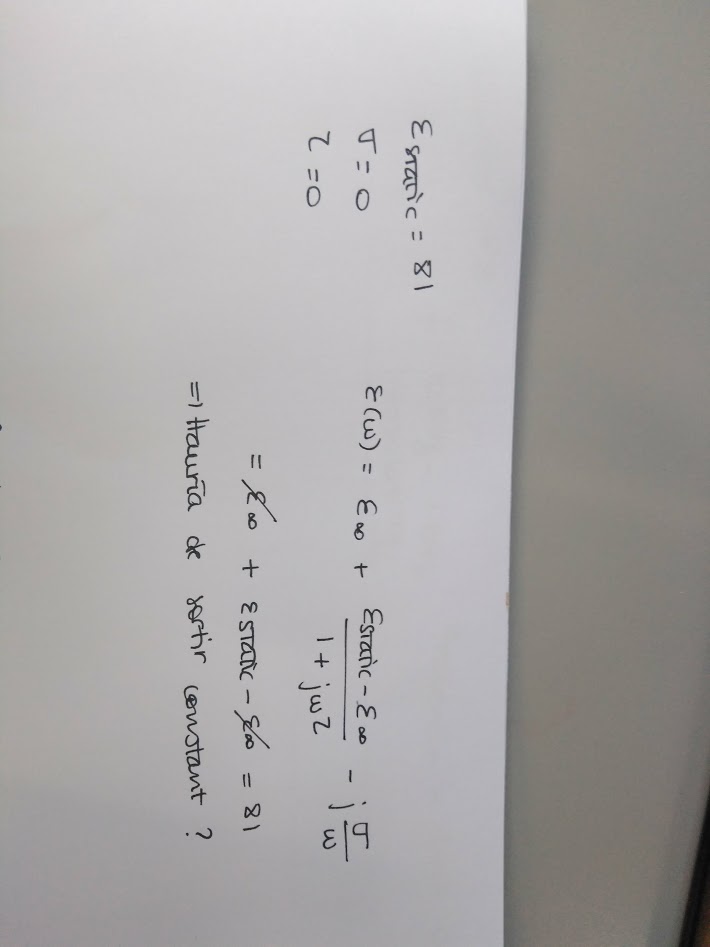 εstatic = 81
σ = 0
τ = 0
ε(ω) = ε∞ + (εstatic - ε∞)/(1 + jωτ) - j σ/ω
= ε∞ + εstatic - ε∞ = 81
=> Hauria de sortir constant ?